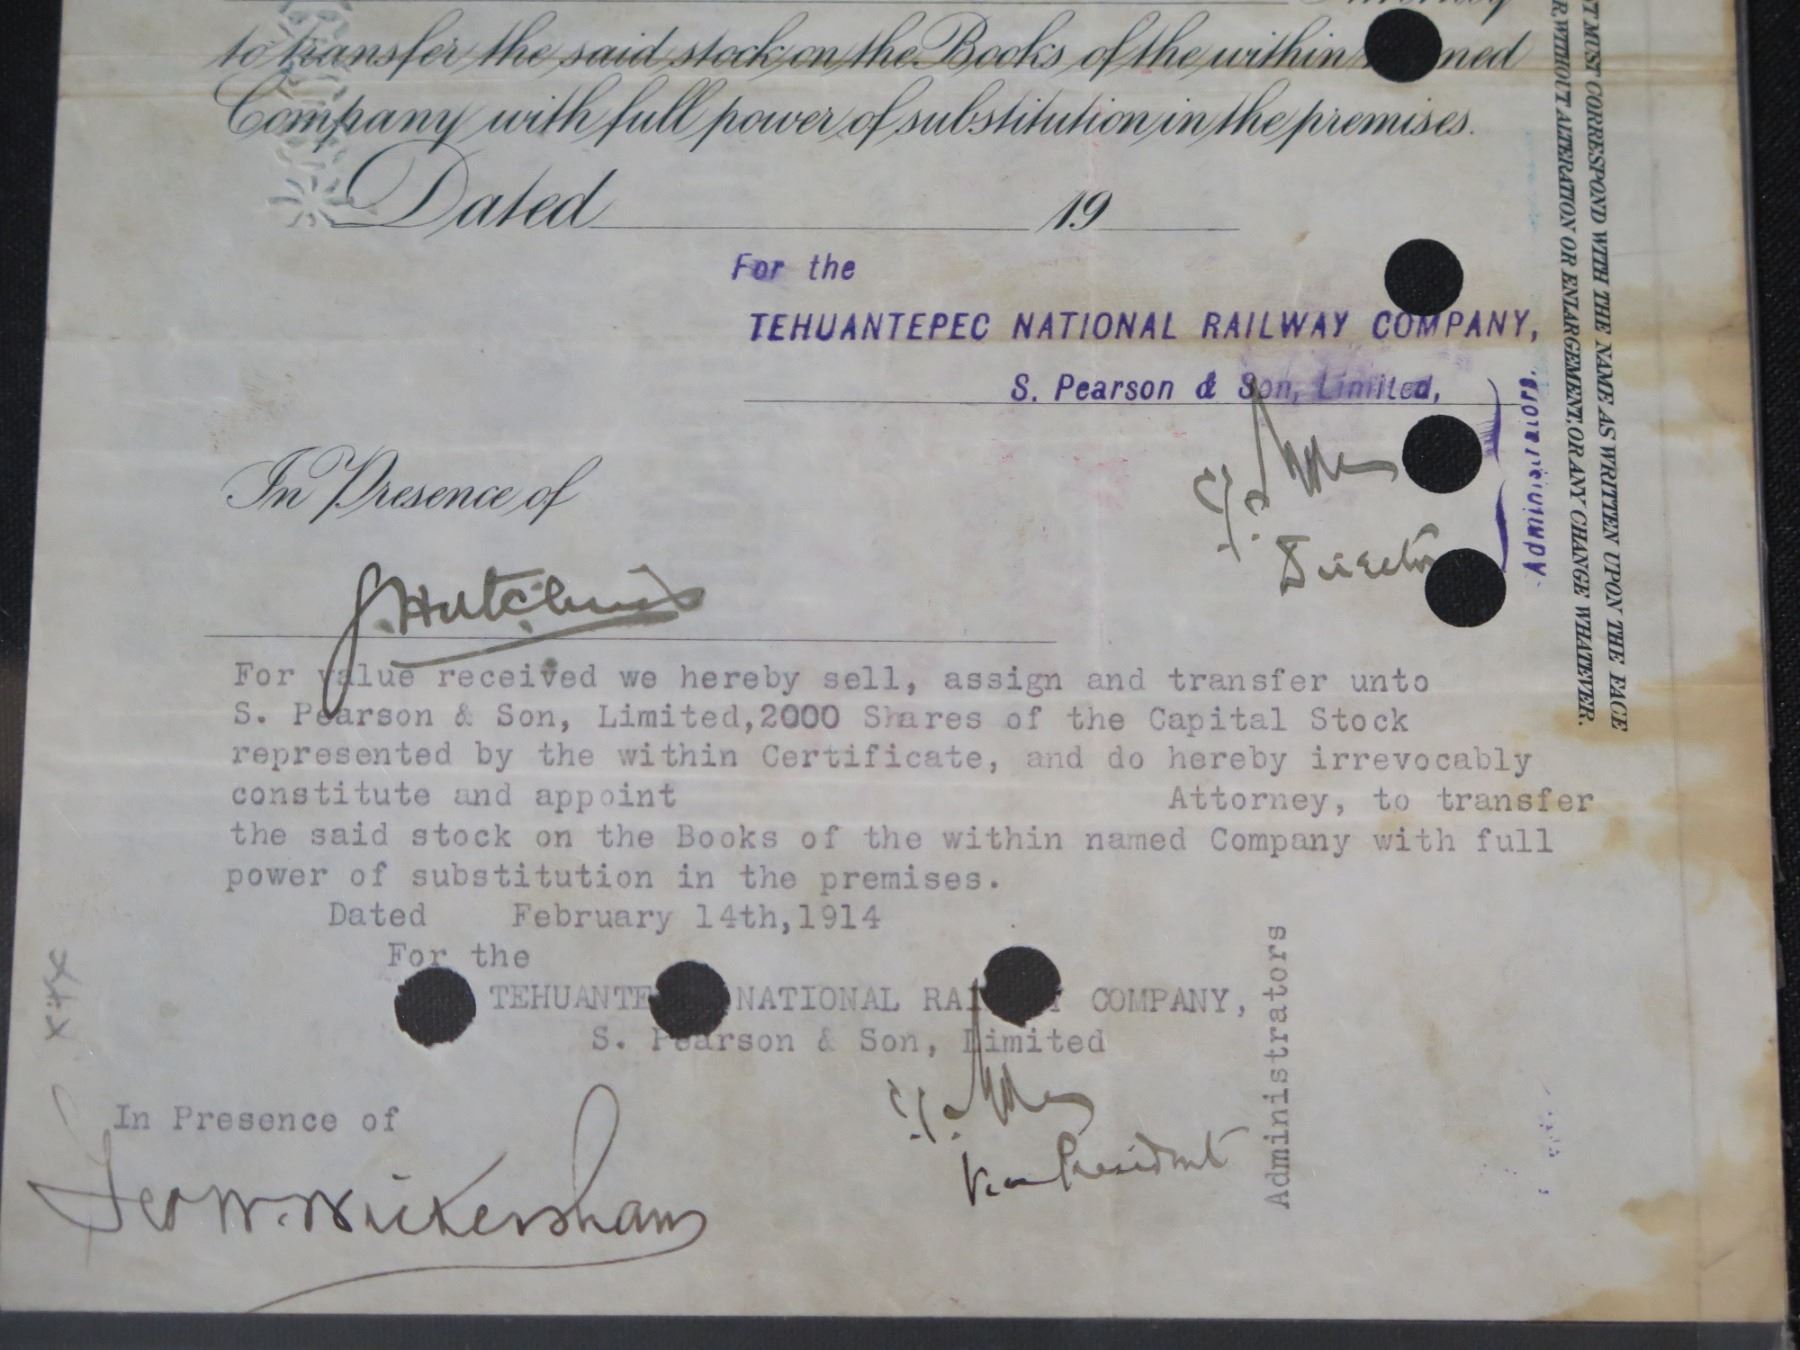 to transfer the said stock on the Books of the within
Company with full power of substitution in the premises.
Dated 19
For the
TEHUANTEPEC NATIONAL RAILWAY COMPANY,
S. Pearson & Son, Limited,
Administrators.
Director
In Presence of
J. Hutchins
For value received we hereby sell, assign and transfer unto
S. Pearson & Son, Limited,2000 Shares of the Capital Stock
represented by the within Certificate, and do hereby irrevocably
constitute and appoint Attorney, to transfer
the said stock on the Books of the within named Company with full
power of substitution in the premises.
Dated February 14th,1914
For the
NATIONAL COMPANY,
S. Pearson & Son, Limited
Administrators
Vice President
In Presence of
Geo W. Wickersham
T MUST CORRESPOND WITH THE NAME AS WRITTEN UPON THE FACE
R, WITHOUT ALTERATION OR ENLARGEMENT, OR ANY CHANGE WHATEVER.